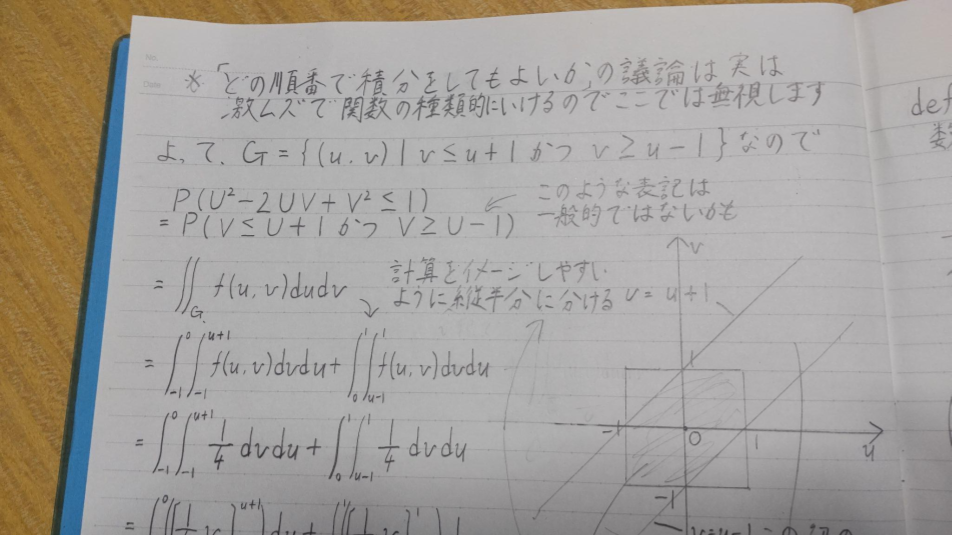 No.
Date
※「どの順番で積分をしてもよいか」の議論は実は
激ムズで関数の種類的にいけるのでここでは無視します
よって、G = {(u, v) | v ≤ u+1 かつ v ≥ u-1} なので
P(U² - 2UV + V² ≤ 1)
= P(V ≤ U+1 かつ V ≥ U-1)
このような表記は
一般的ではないかも
= ∬_G f(u, v) du dv
計算をイメージしやすい
ように縦半分に分ける
= ∫_{-1}^{0} ∫_{-1}^{u+1} f(u, v) dv du + ∫_{0}^{1} ∫_{u-1}^{1} f(u, v) dv du
= ∫_{-1}^{0} ∫_{-1}^{u+1} 1/4 dv du + ∫_{0}^{1} ∫_{u-1}^{1} 1/4 dv du
v
v = u+1
1
-1
0
1
u
-1
def